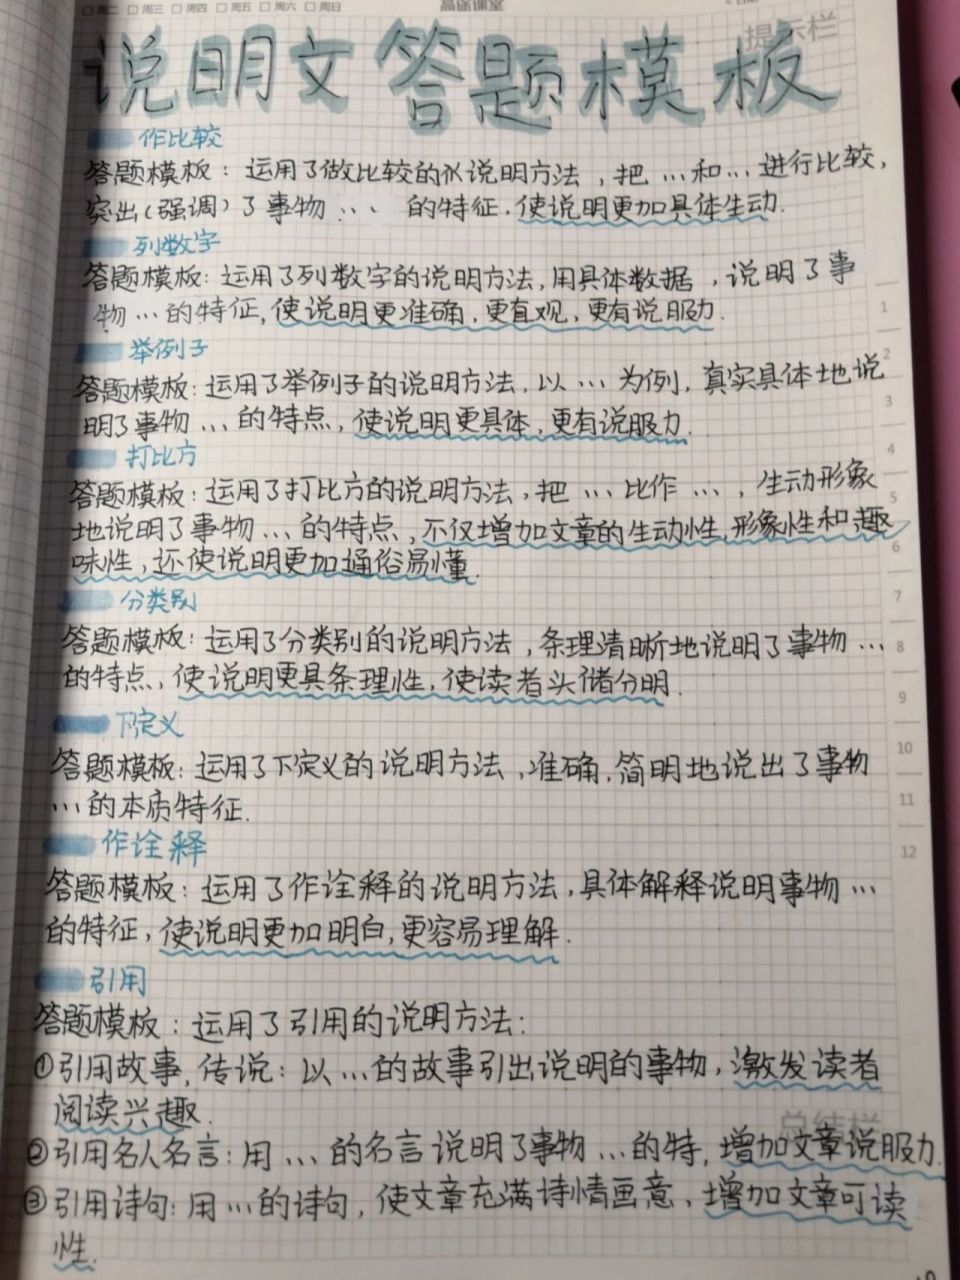 □周二 □周三 □周四 □周五 □周六 □周日
高途课堂
提示栏
说明文答题模板
作比较
答题模板：运用了做比较的说明方法，把…和…进行比较，
突出（强调）了事物…的特征，使说明更加具体生动.
列数字
答题模板：运用了列数字的说明方法，用具体数据，说明了事
物…的特征，使说明更准确，更直观，更有说服力.
举例子
答题模板：运用了举例子的说明方法，以…为例，真实具体地说
明了事物…的特点，使说明更具体，更有说服力.
打比方
答题模板：运用了打比方的说明方法，把…比作…，生动形象
地说明了事物…的特点，不仅增加文章的生动性，形象性和趣
味性，还使说明更加通俗易懂.
分类别
答题模板：运用了分类别的说明方法，条理清晰地说明了事物…
的特点，使说明更具条理性，使读者头储分明.
下定义
答题模板：运用了下定义的说明方法，准确，简明地说出了事物
…的本质特征.
作诠释
答题模板：运用了作诠释的说明方法，具体解释说明事物…
的特征，使说明更加明白，更容易理解.
引用
答题模板：运用了引用的说明方法：
①引用故事，传说：以…的故事引出说明的事物，激发读者
阅读兴趣.
②引用名人名言：用…的名言说明了事物…的特，增加文章说服力.
③引用诗句：用…的诗句，使文章充满诗情画意，增加文章可读
性.
总结栏
1
2
3
4
5
6
7
8
9
10
11
12